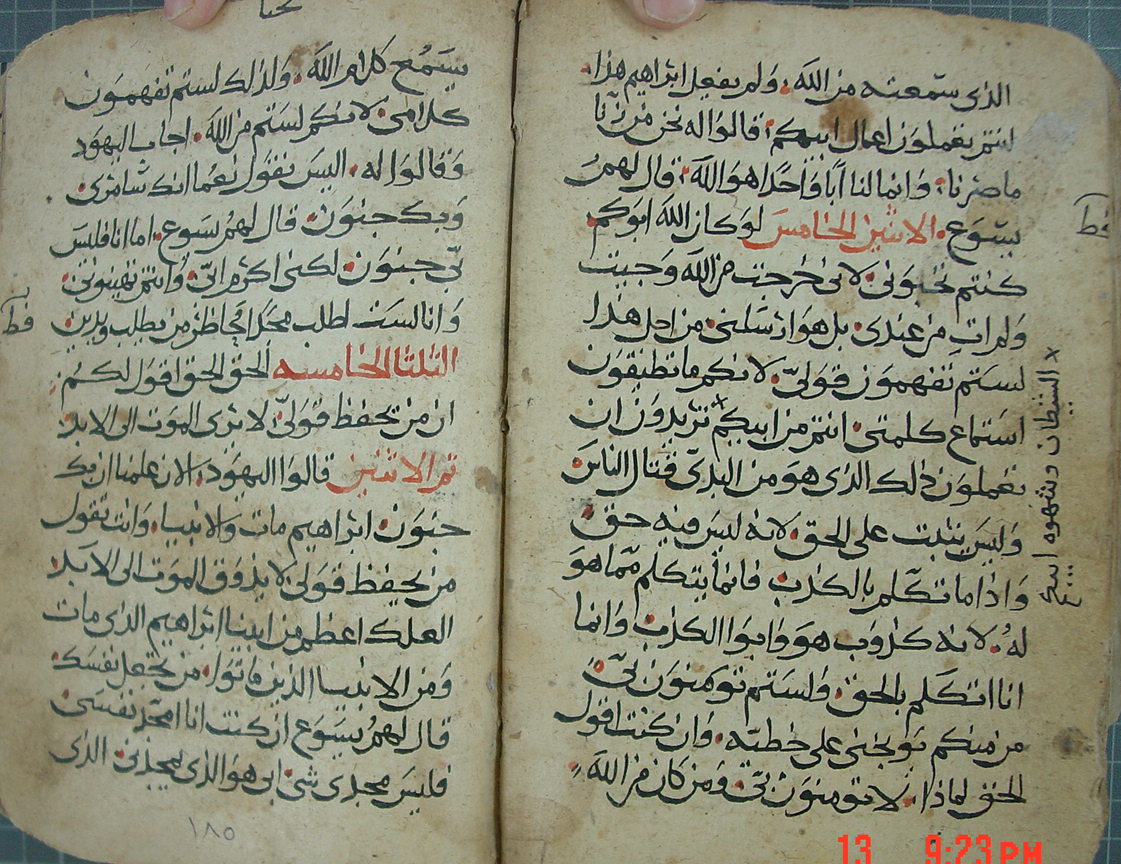 الذى سمعته من الله. ولم يفعل ابراهيم هذا.
انتم تعملون اعمال ابيكم. قالوا له نحن من زنا
ما صرنا. وانما لنا ابا واحدا هو الله. قال لهم
يسوع. الاثنين الخامس لو كان الله ابوكم
كنتم تحبونى. لانى خرجت من الله وجيت
ولم ات من عندى. بل هو ارسلنى. من اجل هذا
لستم تفهمون قولى. لانكم ما تطيقون
استماع كلمتى. انتم من ابيكم × تريدون ان
تعملون ذلك الذى هو من البدى قتال الناس
وليس يثبت على الحق. لانه ليس فيه حق.
واذا ما تكلم بالكذب فانما يتكلم مما هو
له. لانه كذوب هو وابوا الكذب. وانما
انا اتكلم بالحق. ولستم تومنون بى
من منكم يوبخنى على خطيه. وان كنت اقول
الحق لماذا. لا تومنون بى. ومن كان من الله
× الشيطان وشهوه
قط
يسمع كلام الله. ولذلك لستم تفهمون
كلامى. لانكم لستم من الله. اجاب اليهود
وقالوا له. اليس نقول نعما انك شامرى.
وبك جنون. قال لهم يسوع. اما انا فليس
بى جنون. لكنى اكرم ابى. وانتم تهينونى.
وانا لست اطلب مجدا لى من يطلب ويدين
الثلثا الخامسه الحق الحق اقول لكم
ان من يحفظ قولى. لا يرى الموت الى الابد
تم الاثنين قالوا اليهود. الان علمنا ان بك
جنون. ابراهيم مات والانبيا. وانت تقول
من يحفظ قولى. لا يذوق الموت الى الابد
العلك اعظم من ابينا ابراهيم الذى مات
ومن الانبيا الذين ماتوا. من تجعل نفسك
قال لهم يسوع ان كنت انا امجد نفسى
فليس مجدى شى. ابى هو الذى يمجدنى. الذى
١٨٥
13 9:23 PM